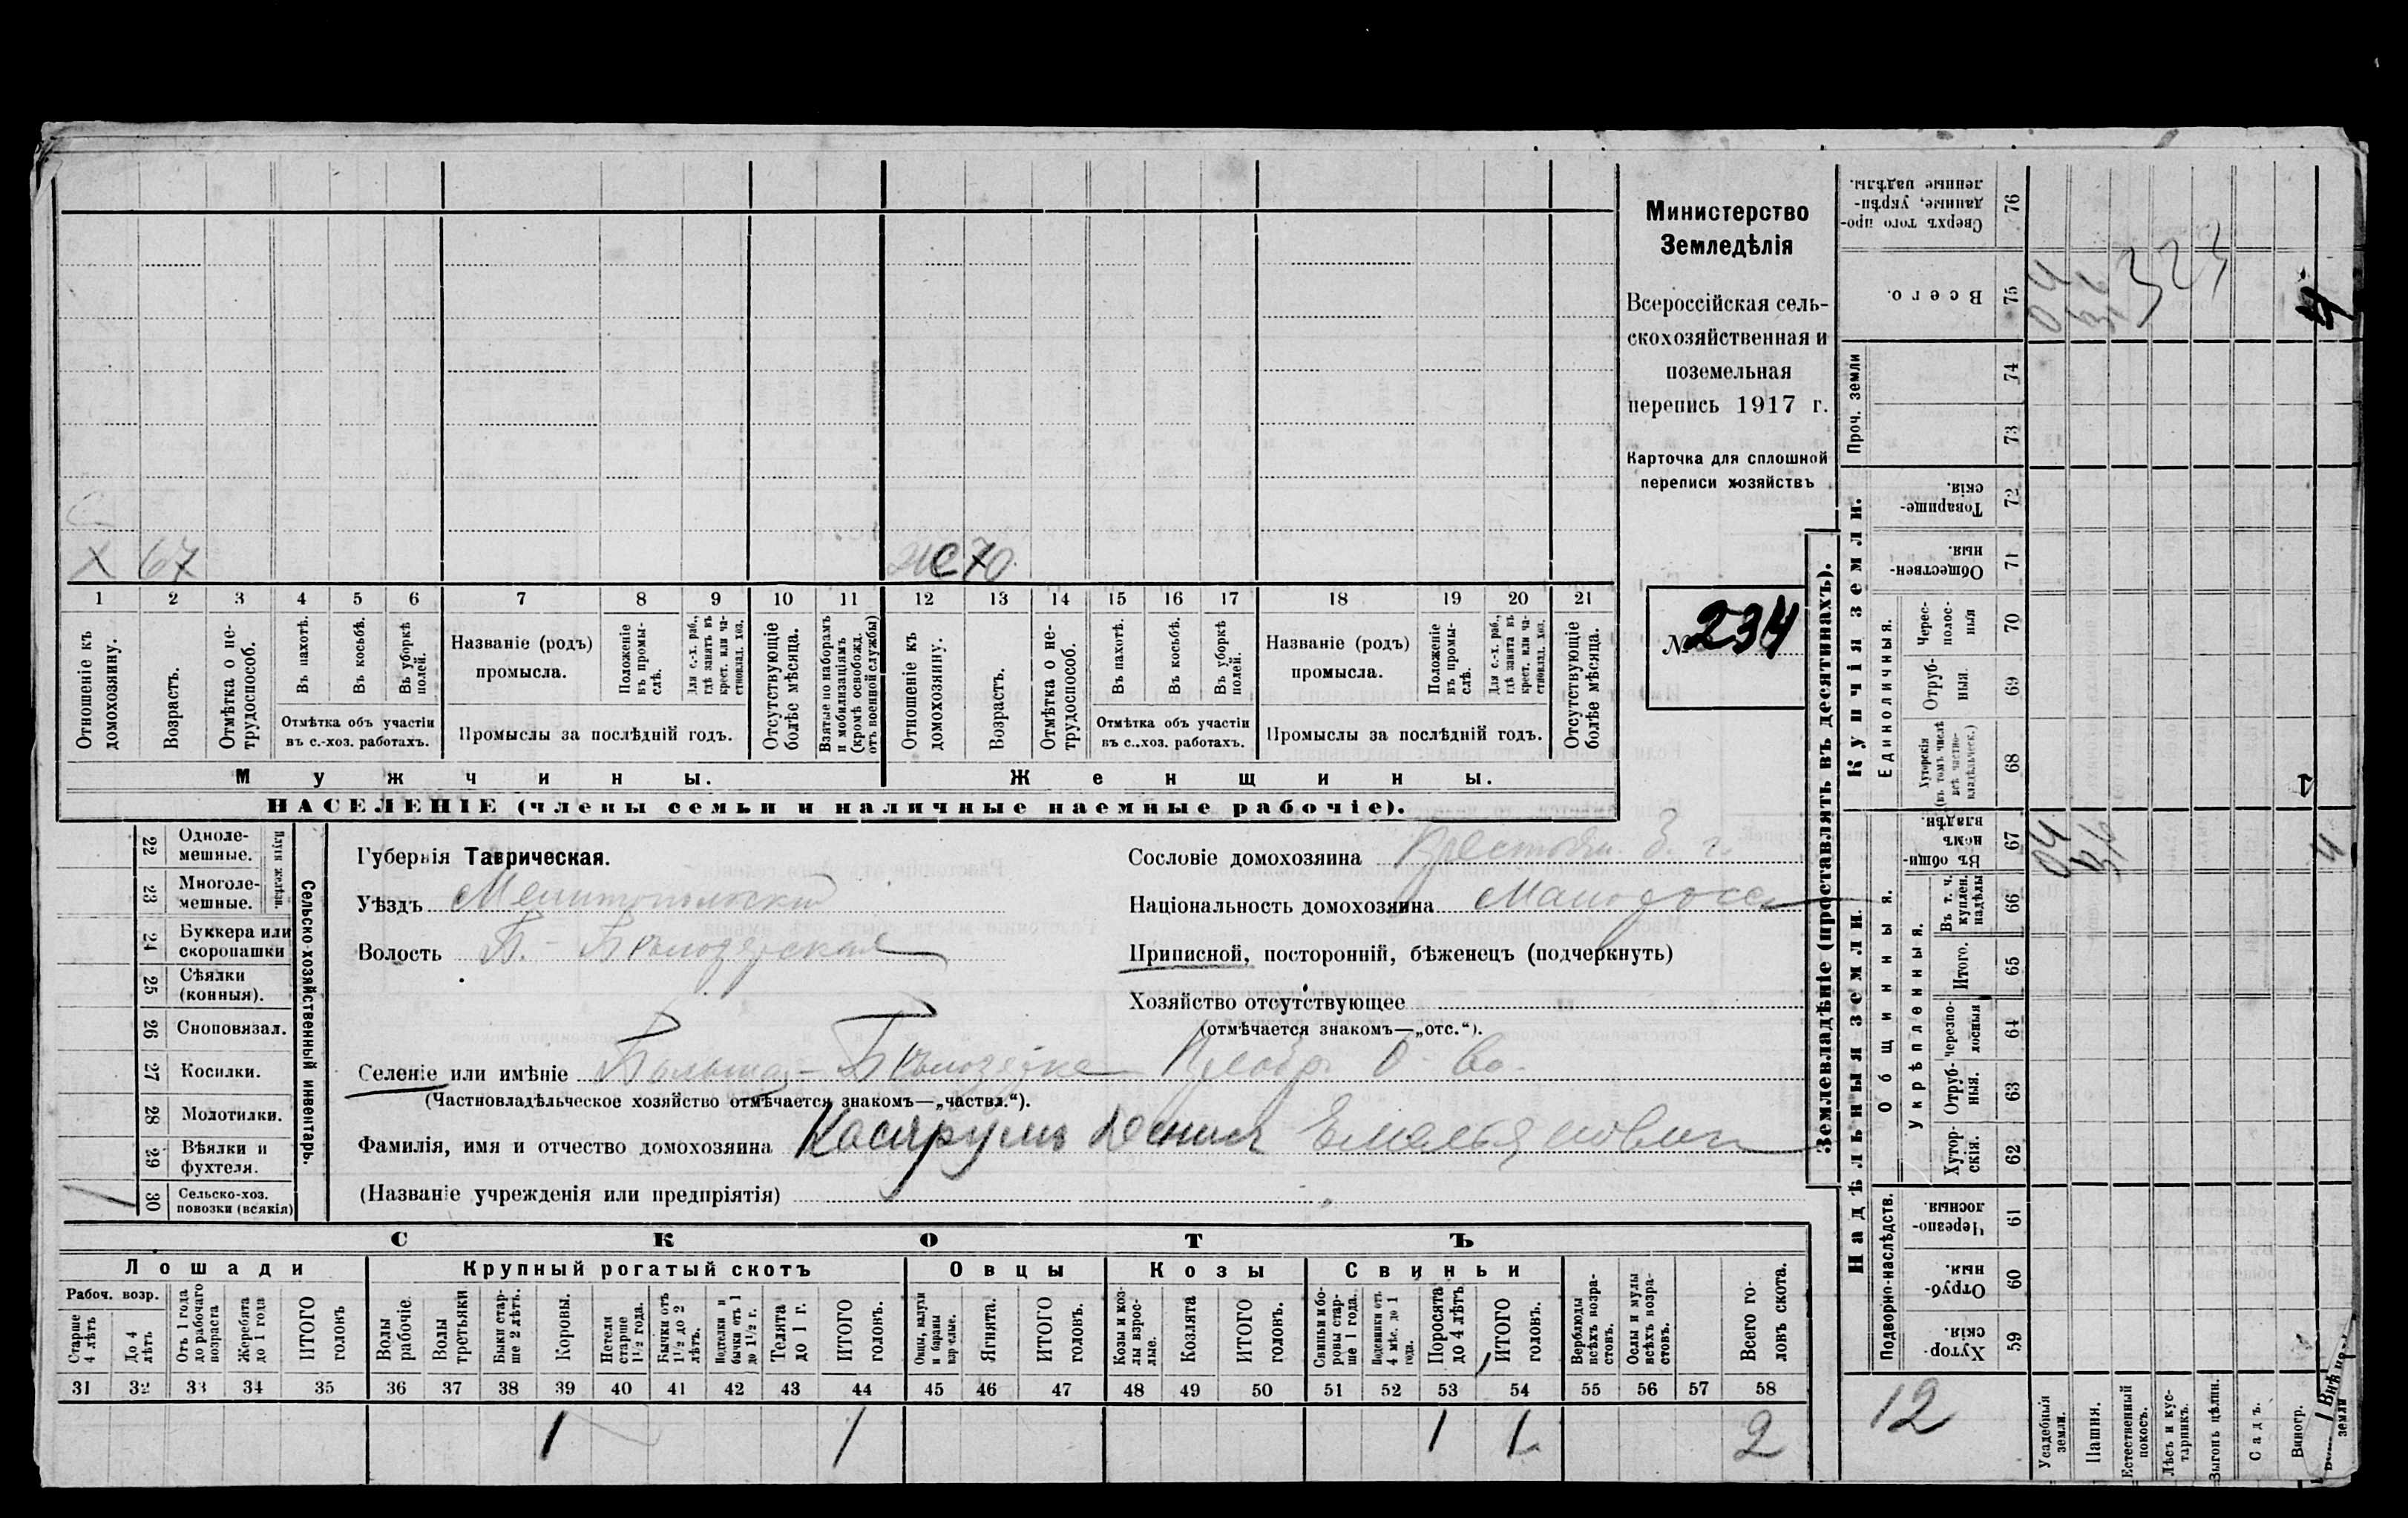 Х 67 Ж 70
1 2 3 4 5 6 7 8 9 10 11 12 13 14 15 16 17 18 19 20 21
Отношеніе къ домохозяину.
Возрастъ.
Отмѣтка о не-
трудоспособ.
Въ пахотѣ.
Въ косьбѣ.
Въ уборкѣ полей.
Отмѣтка объ участіи
въ с.-хоз. работахъ.
Названіе (родъ)
промысла.
Положеніе въ промы-
слѣ.
Для с.-х. раб., гдѣ занятъ въ крест. или ча-
стновлад. хоз.
Промыслы за послѣдній годъ.
Отсутствующіе болѣе мѣсяца.
Взятые по наборамъ и мобилизаціямъ (кромѣ освобожд. отъ военной службы)
Отношеніе къ домохозяину.
Возрастъ.
Отмѣтка о не-
трудоспособ.
Въ пахотѣ.
Въ косьбѣ.
Въ уборкѣ полей.
Отмѣтка объ участіи
въ с.-хоз. работахъ.
Названіе (родъ)
промысла.
Положеніе въ промы-
слѣ.
Для с.-х. раб., гдѣ занятъ въ крест. или ча-
стновлад. хоз.
Промыслы за послѣдній годъ.
Отсутствующіе болѣе мѣсяца.
Мужчины. Женщины.
НАСЕЛЕНІЕ (члены семьи и наличные наемные рабочіе).
Министерство
Земледѣлія
Всероссійская сель-
скохозяйственная и
поземельная
перепись 1917 г.
Карточка для сплошной
переписи хозяйствъ
№ 234
22 Одноле-
мешные.
23 Многоле-
мешные.
Плуги желѣзн.
24 Буккера или
скоропашки
25 Сѣялки
(конныя).
26 Сноповязал.
27 Косилки.
28 Молотилки.
29 Вѣялки и
фухтеля.
1 30 Сельско-хоз.
повозки (всякія)
Сельско-хозяйственный инвентарь.
Губернія Таврическая.
Уѣздъ Мелитопольскій
Волость Б.-Бѣлозерская
Сословіе домохозяина
Національность домохозяина Малоросс
Приписной, посторонній, бѣженецъ (подчеркнуть)
Хозяйство отсутствующее
(отмѣчается знакомъ—„отс.“).
Селеніе или имѣніе Больша- Бѣлозерка Преобр. О-во.
(Частновладѣльческое хозяйство отмѣчается знакомъ—„частвл.“).
Фамилія, имя и отчество домохозяина Емельяновичъ
(Названіе учрежденія или предпріятія)
СКОТЪ
Лошади Крупный рогатый скотъ Овцы Козы Свиньи
Рабоч. возр.
Старше 4 лѣтъ
До 4 лѣтъ
Отъ 1 года до рабочаго возраста
Жеребята до 1 года
ИТОГО головъ
Волы рабочіе.
Волы третьяки
Быки стар-
ше 2 лѣтъ.
Коровы.
Нетели старше 1½ года.
Бычки отъ 1½ до 2 лѣтъ.
Нетелки и бычки отъ 1 до 1½ г.
Телята до 1 г.
ИТОГО головъ.
Овцы, валухи и бараны взрослые.
Ягнята.
ИТОГО головъ.
Козы и коз-
лы взрос-
лые.
Козлята
ИТОГО головъ.
Свиньи и бо-
ровы стар-
ше 1 года.
Подсвинки отъ 4 мѣс. до 1 года.
Поросята до 4 лѣтъ
ИТОГО головъ.
Верблюды всѣхъ возра-
стовъ.
Ослы и мулы всѣхъ возра-
стовъ.
Всего го-
ловъ скота.
31 32 33 34 35 36 37 38 39 40 41 42 43 44 45 46 47 48 49 50 51 52 53 54 55 56 57 58
1 1 1 1 2
Землевладѣніе (проставлять въ десятинахъ).
Купчія земли.
Надѣльныя земли.
Сверхъ того про-
данные, укрѣп-
ленные надѣлы. 76
Всего. 75
Проч. земли 74 73
Товарище-
скія. 72
Обществен-
ныя. 71
Единоличныя.
Черес-
полос-
ныя 70
Отруб-
ныя. 69
Хуторскія (въ томъ числѣ всѣ частно-
владѣльческ.) 68
Общинныя.
Въ общи-
номъ владѣн. 67
Укрѣпленныя.
Въ т. ч. куплен. надѣлы 66
Итого. 65
черезпо-
лосныя 64
Отруб-
ныя. 63
Хутор-
скія. 62
Подворно-наслѣдств.
Черезпо-
лосныя. 61
Отруб-
ныя. 60
Хутор-
скія 59
12
Усадебныя земли.
Пашня.
Естественный покосъ.
Лѣсъ и кус-
тарникъ.
Выгонъ цѣлин.
Садъ.
Виногр.
земли